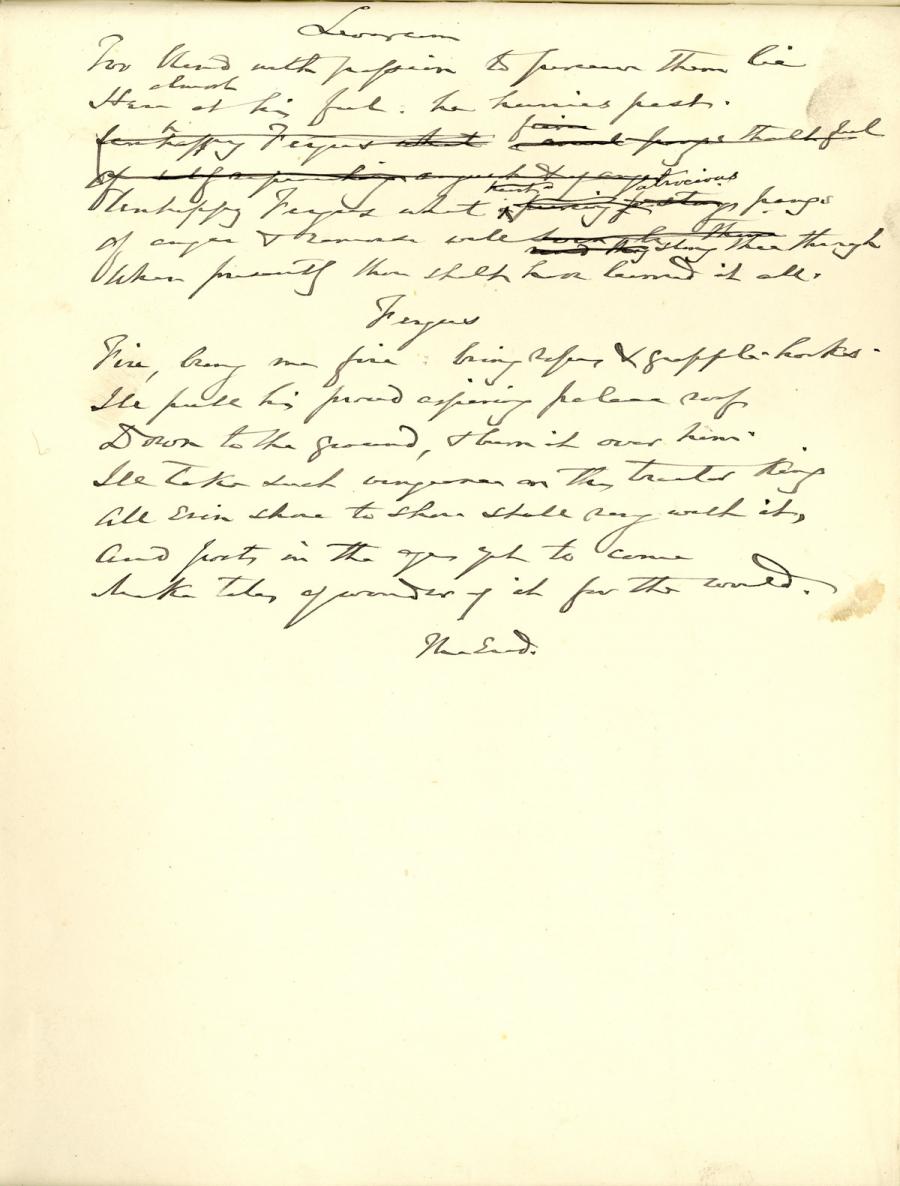 Levarcam
Too blind with passion to perceive them lie
almost
Here at his feet. he hurries past.
Unhappy Fergus what fierce pangs thou'lt feel
of self reproaching anguish &
Unhappy Fergus what atrocious pangs
of anger & remorse will sting thee through
When presently thou shalt have learned it all.
Fergus
Fire, bring me fire. bring ropes & grapple-hooks.
Ile pull his proud aspiring palace roof
Down to the ground, & burn it over him.
Ile take such vengeance on this traitor King
All Erin shore to shore shall ring with it,
And poets in the ages yet to come
Make tales of wonder of it for the world.
The End.